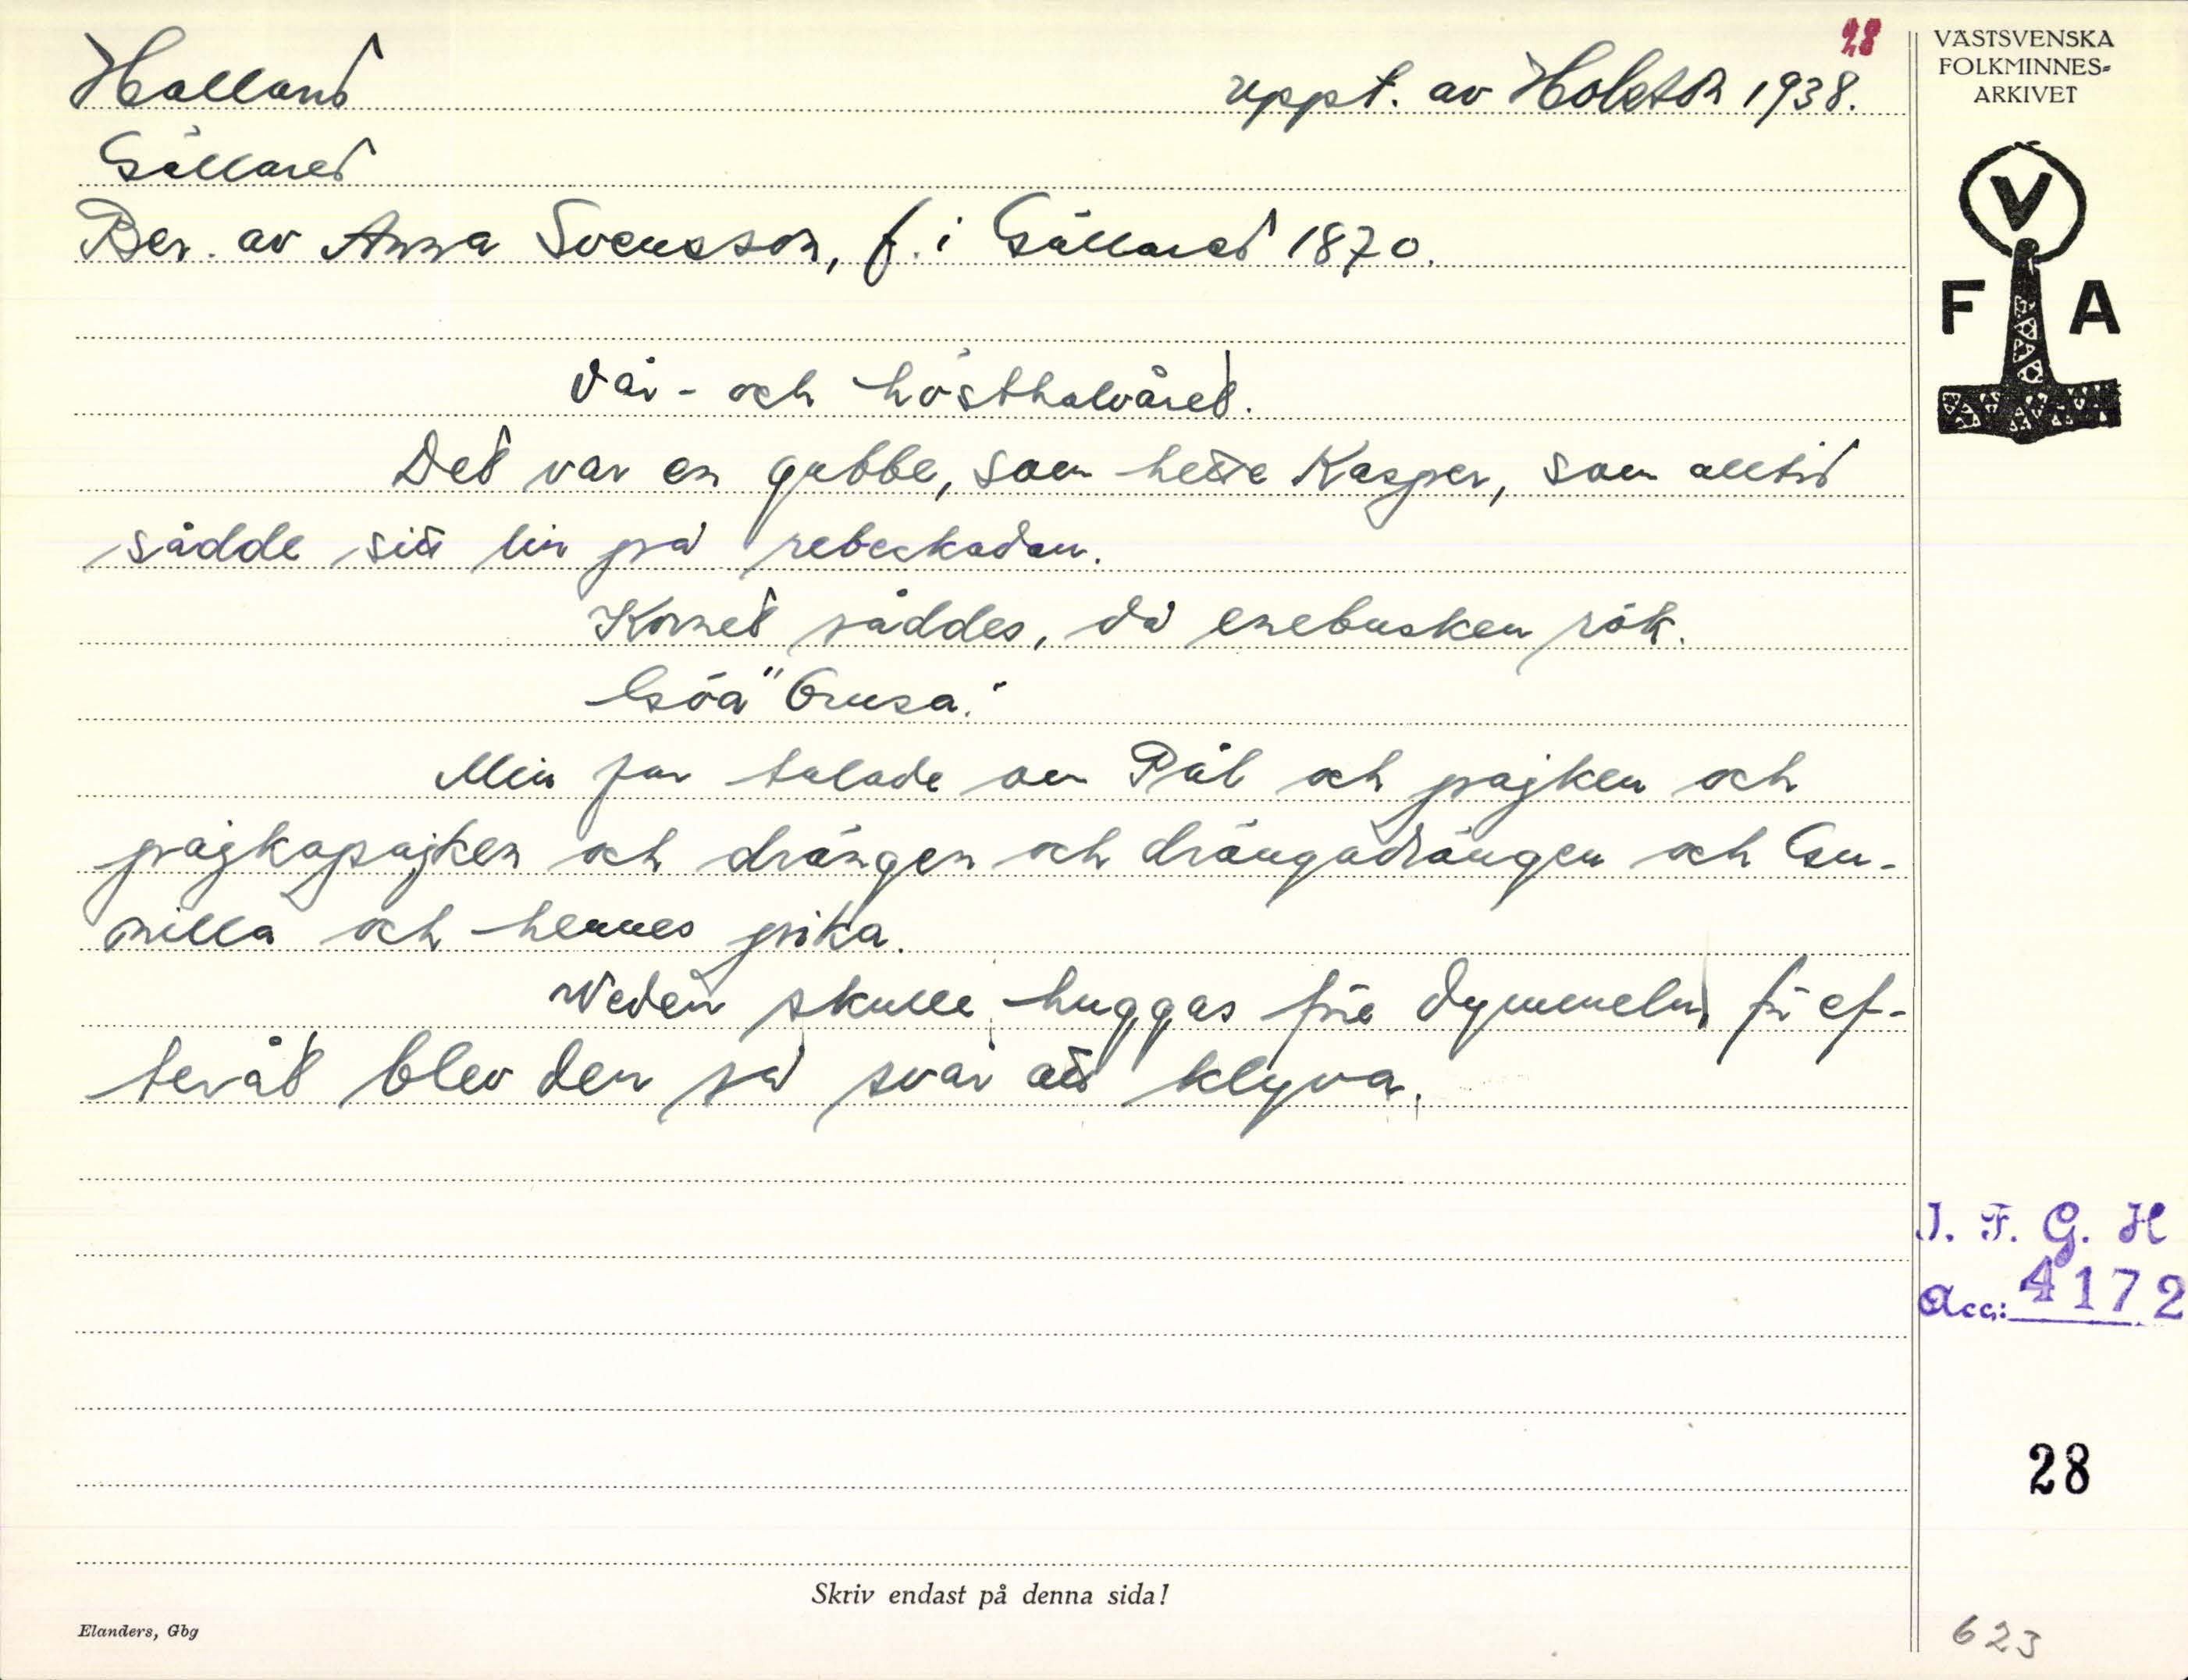 28
Halland
uppt. av Holston 1938.
Gällared
Ber. av Anna Svensson, f. i Gällared 1870.
Vår- och hösthalvåret.
Det var en gubbe, som hette Kasper, som alltid
sådde sitt lin på rebeckadan.
Kornet såddes, då enebusken rök.
Göa "Grusa".
Min far talade om Pål och pajken och
pajkapajken och drängen och drängadrängen och Gu-
nilla och hennes pika.
Veden skulle huggas före dymmeln, för ef-
teråt blev den så svår att klyva.
Skriv endast på denna sida!
Elanders, Gbg
VÄSTSVENSKA
FOLKMINNES-
ARKIVET
V
F A
I. F. G. H
Acc: 4172
28
623